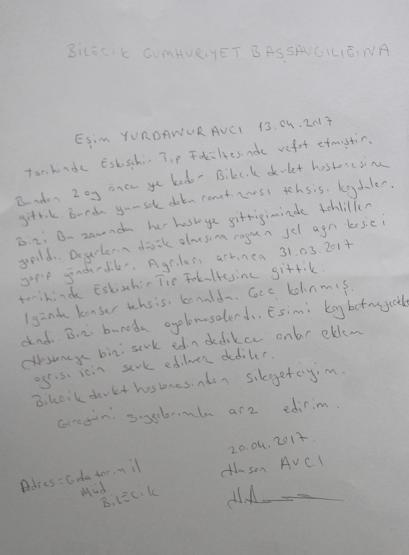 BİLECİK CUMHURİYET BAŞSAVCILIĞINA
Eşim YURDANUR AVCI 13.04.2017
tarihinde Eskişehir Tıp Fakültesinde vefat etmiştir.
Bundan 2 ay önce ye kadar Bilecik devlet hastanesine
gittik Burda yumşak doku romatizması tehsisi koydular.
Bizi Bu zamanda her hastaye gittiğimizde tahliller
yapıldı. Değerlerin düşük olmasına rağmen jel ağrı kesici
yapıp gönderdiler. Ağrıları artınca 31.03.2017
tarihinde Eskişehir Tıp Fakültesine gittik.
1 günde kanser tehsisi konuldu. Geç kalınmış
dendi. Bizi burada oyalamasalardı. Eşimi kaybetmeyecektik
Hastaneye bizi sevk edin dedikce onlar eklem
ağrısı için sevk edilmez dediler.
Bilecik devlet hastanesinden şikayetciyim.
Gereğini saygılarımla arz ederim.
20.04.2017
Adres = Gıda tarım il
Hasan AVCI
Müd
BİLECİK